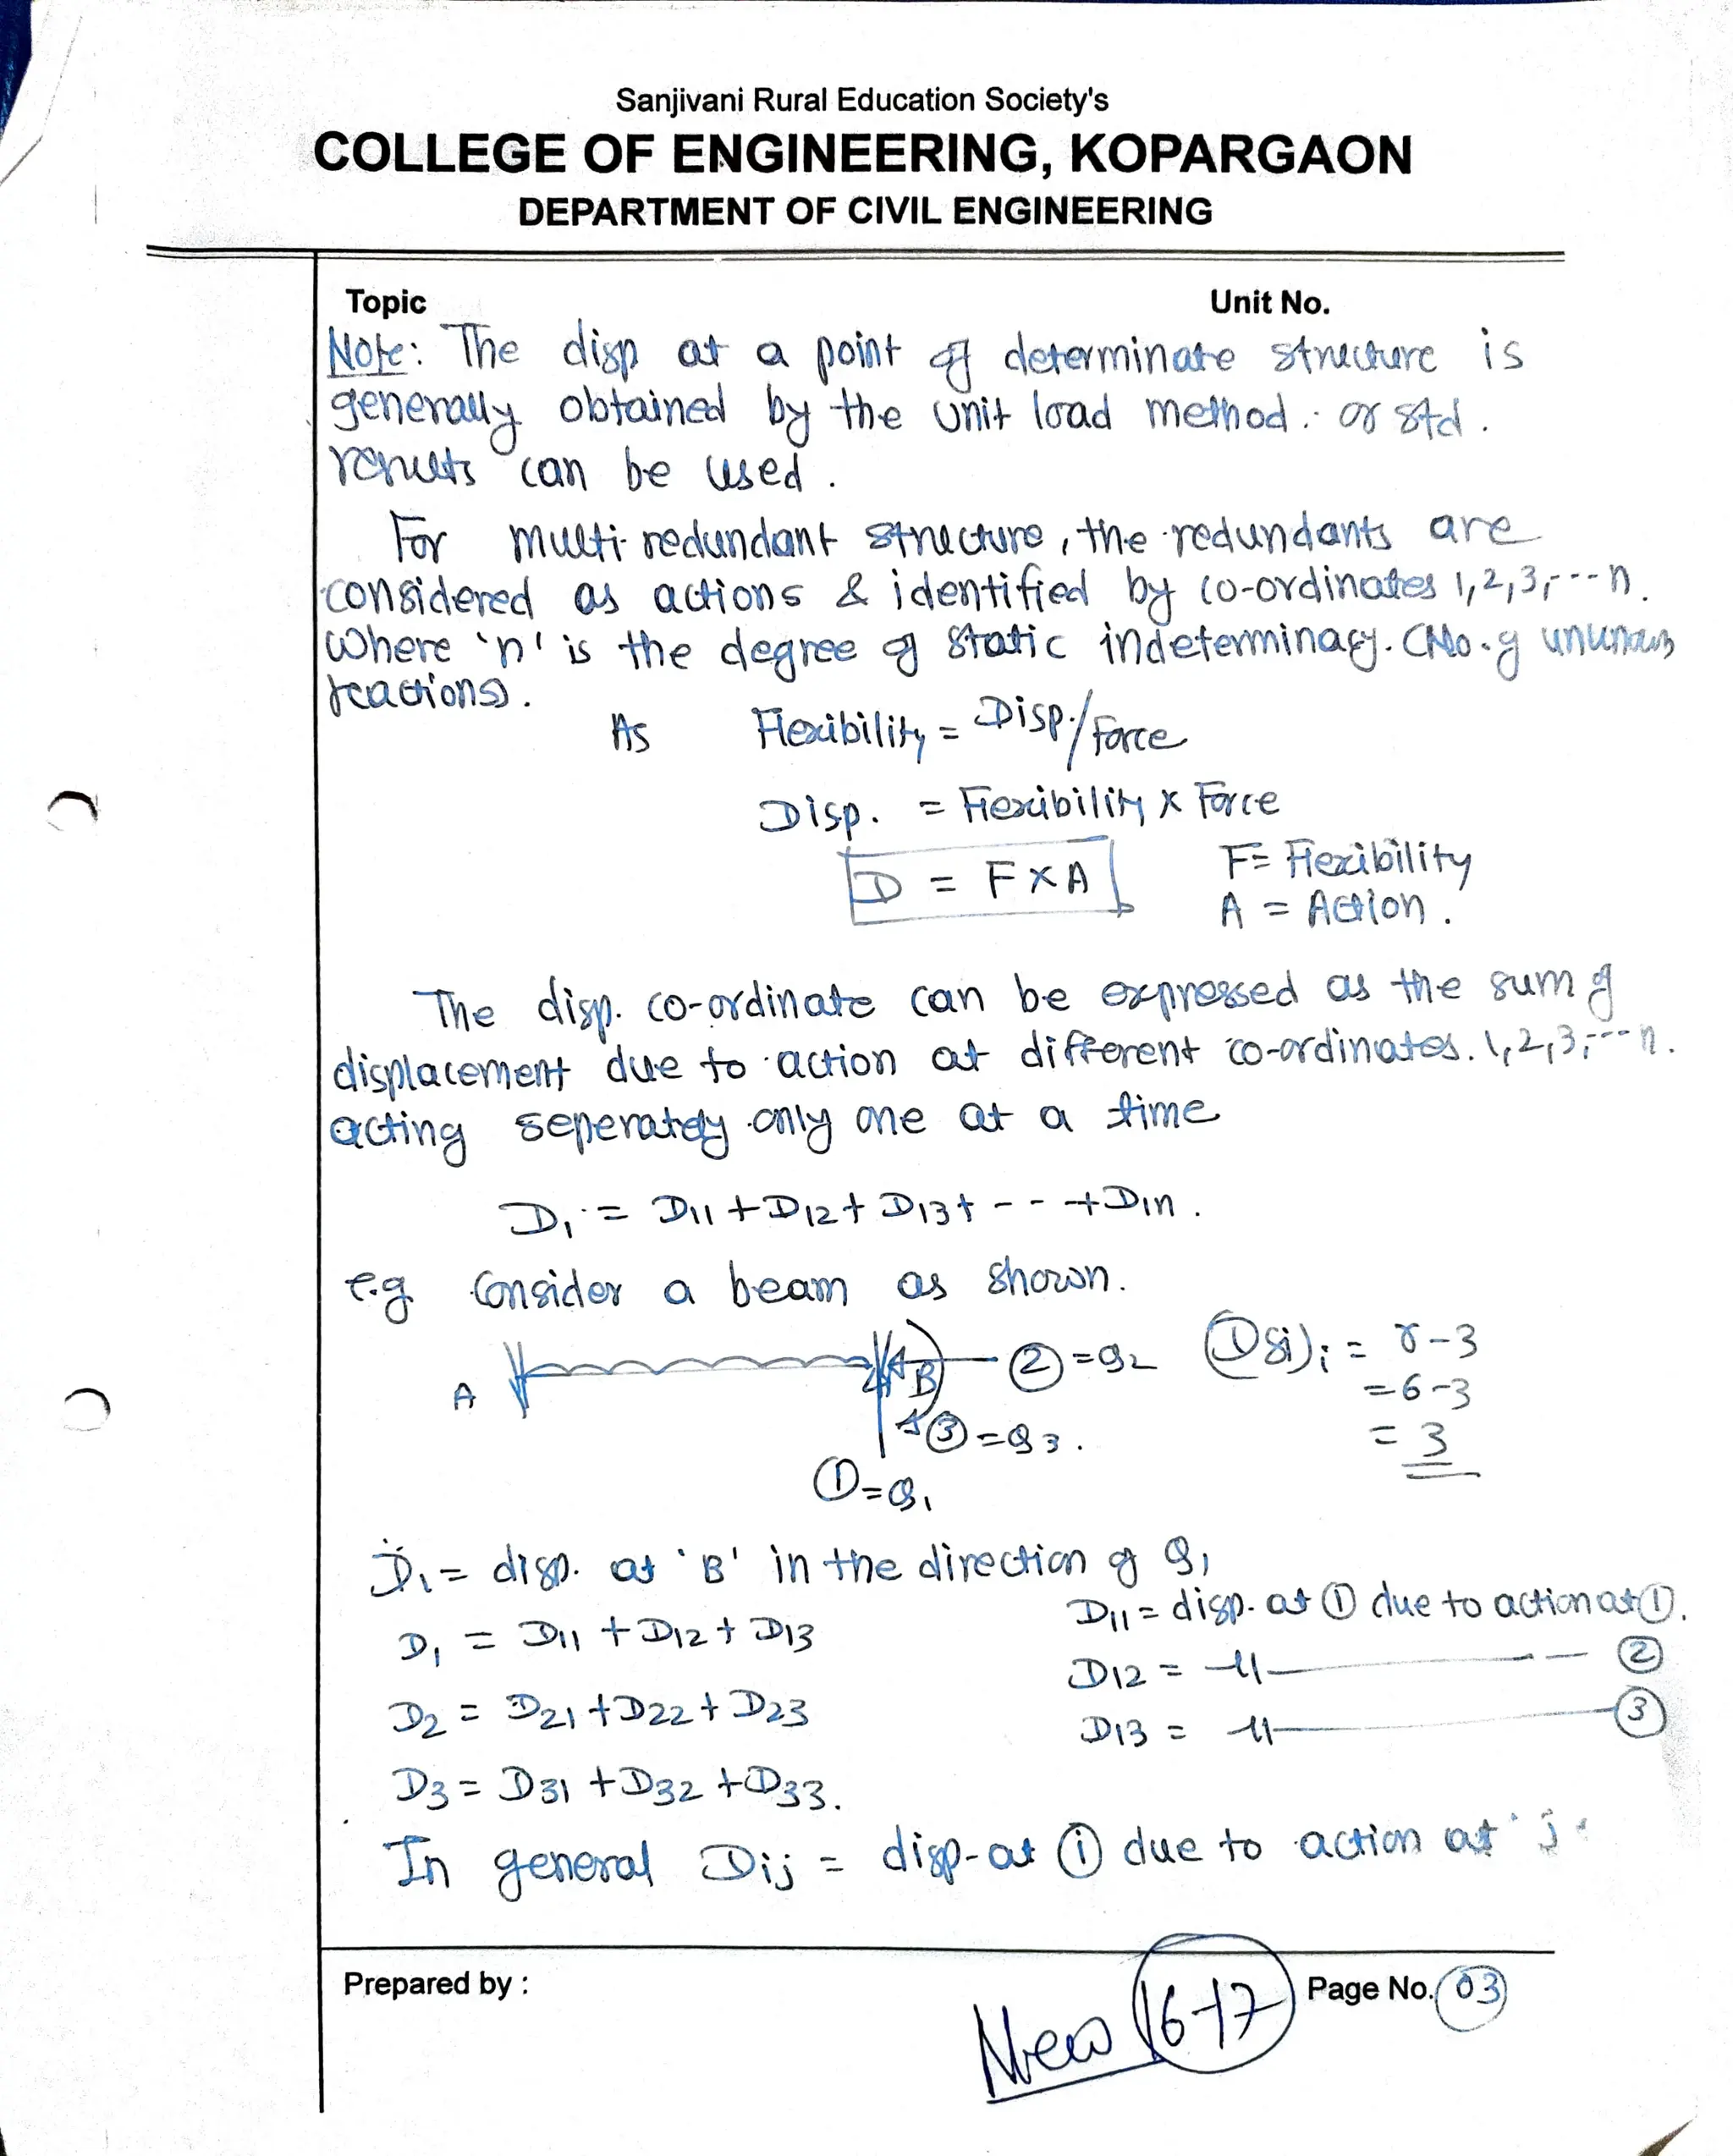 Sanjivani Rural Education Society's
COLLEGE OF ENGINEERING, KOPARGAON
DEPARTMENT OF CIVIL ENGINEERING
Topic Unit No.
Note: The disp at a point of determinate structure is
generally obtained by the unit load method. or std.
results can be used.
For multi-redundant structure, the redundants are
considered as actions & identified by co-ordinates 1,2,3,---n.
Where 'n' is the degree of static indeterminacy. (No. of unknowns
reactions).
As Flexibility = Disp./Force
Disp. = Flexibility x Force
D = F x A F = Flexibility
A = Action.
The disp. co-ordinate can be expressed as the sum of
displacement due to action at different co-ordinates. 1,2,3,---n.
acting seperately only one at a time
D1 = D11 + D12 + D13 + - - + D1n.
e.g Consider a beam as shown.
A B ② = Q2 (Dsi)i = r-3
= 6-3
③ = Q3. = 3
① = Q1
D1 = disp. at 'B' in the direction of Q1
D11 = disp. at ① due to action at ①.
D1 = D11 + D12 + D13
D12 = -11- ②
D2 = D21 + D22 + D23
D13 = -11- ③
D3 = D31 + D32 + D33.
In general Dij = disp-at ⓘ due to action at 'j'
Prepared by : Page No. 03
New 16-17